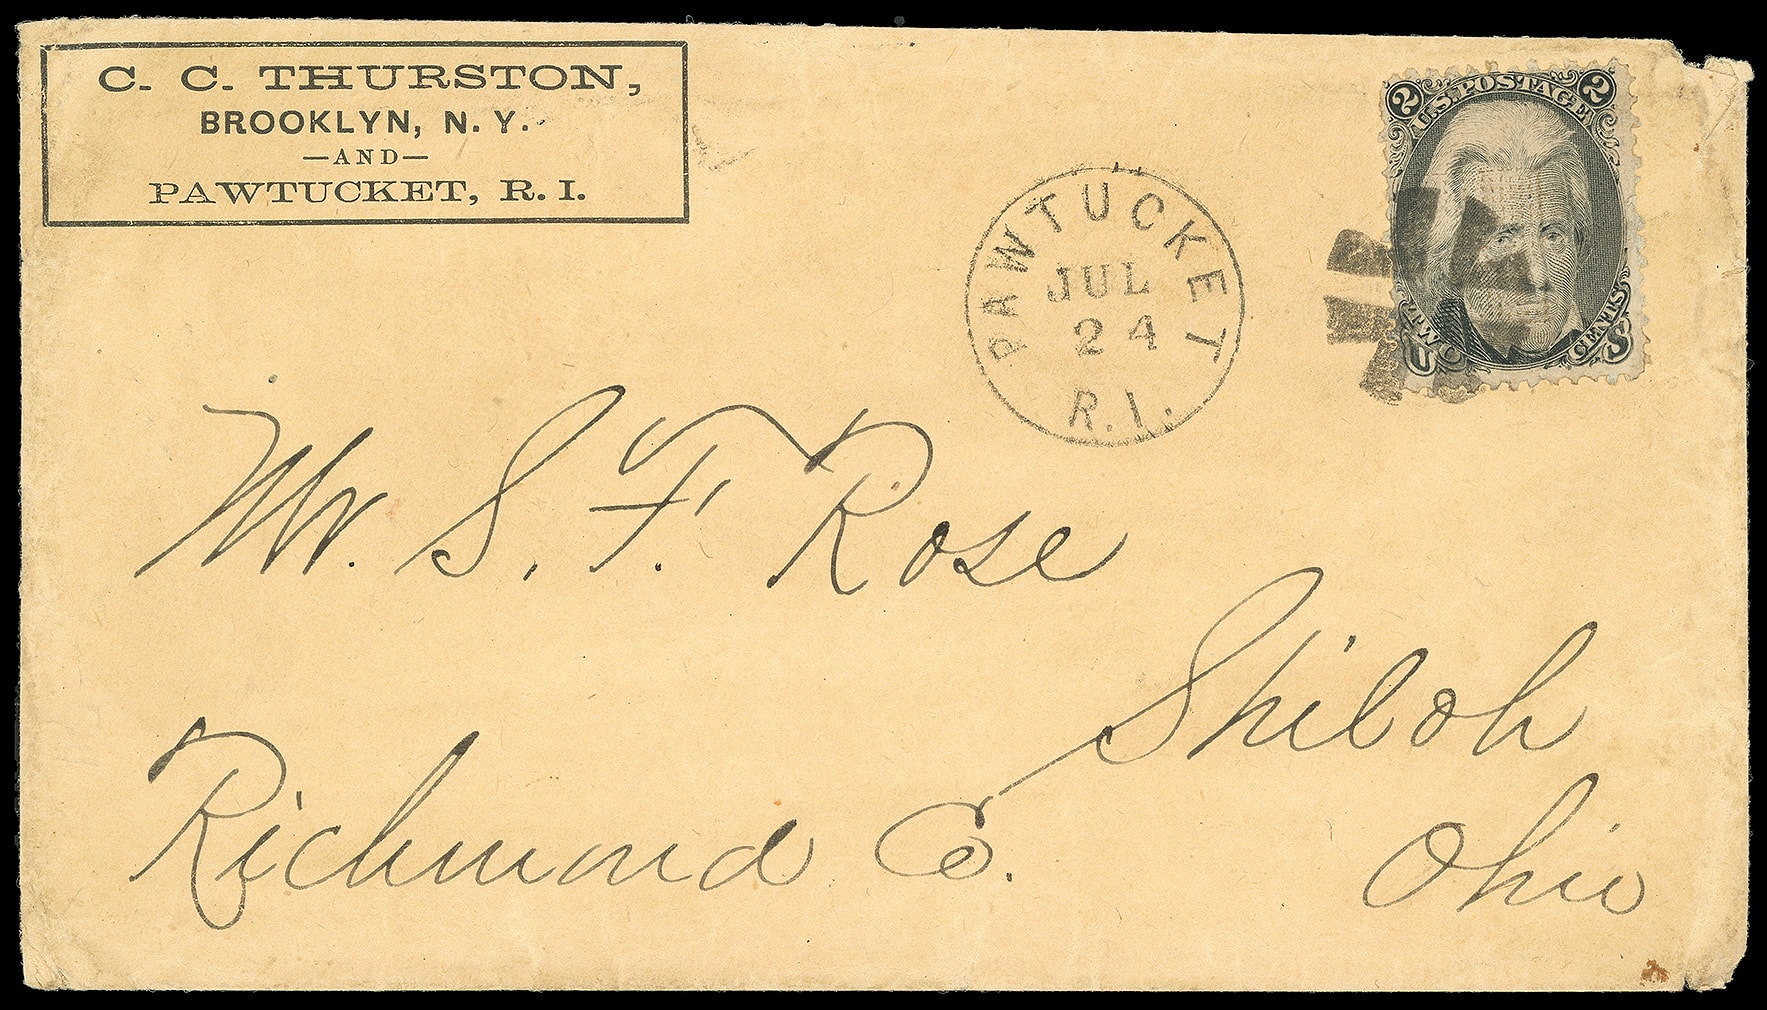 C. C. THURSTON,
BROOKLYN, N. Y.
—AND—
PAWTUCKET, R. I.
PAWTUCKET
JUL
24
R.I.
2 U.S. POSTAGE 2
TWO CENTS
U S
Mr. S. F. Rose
Shiloh
Richmond Co.
Ohio